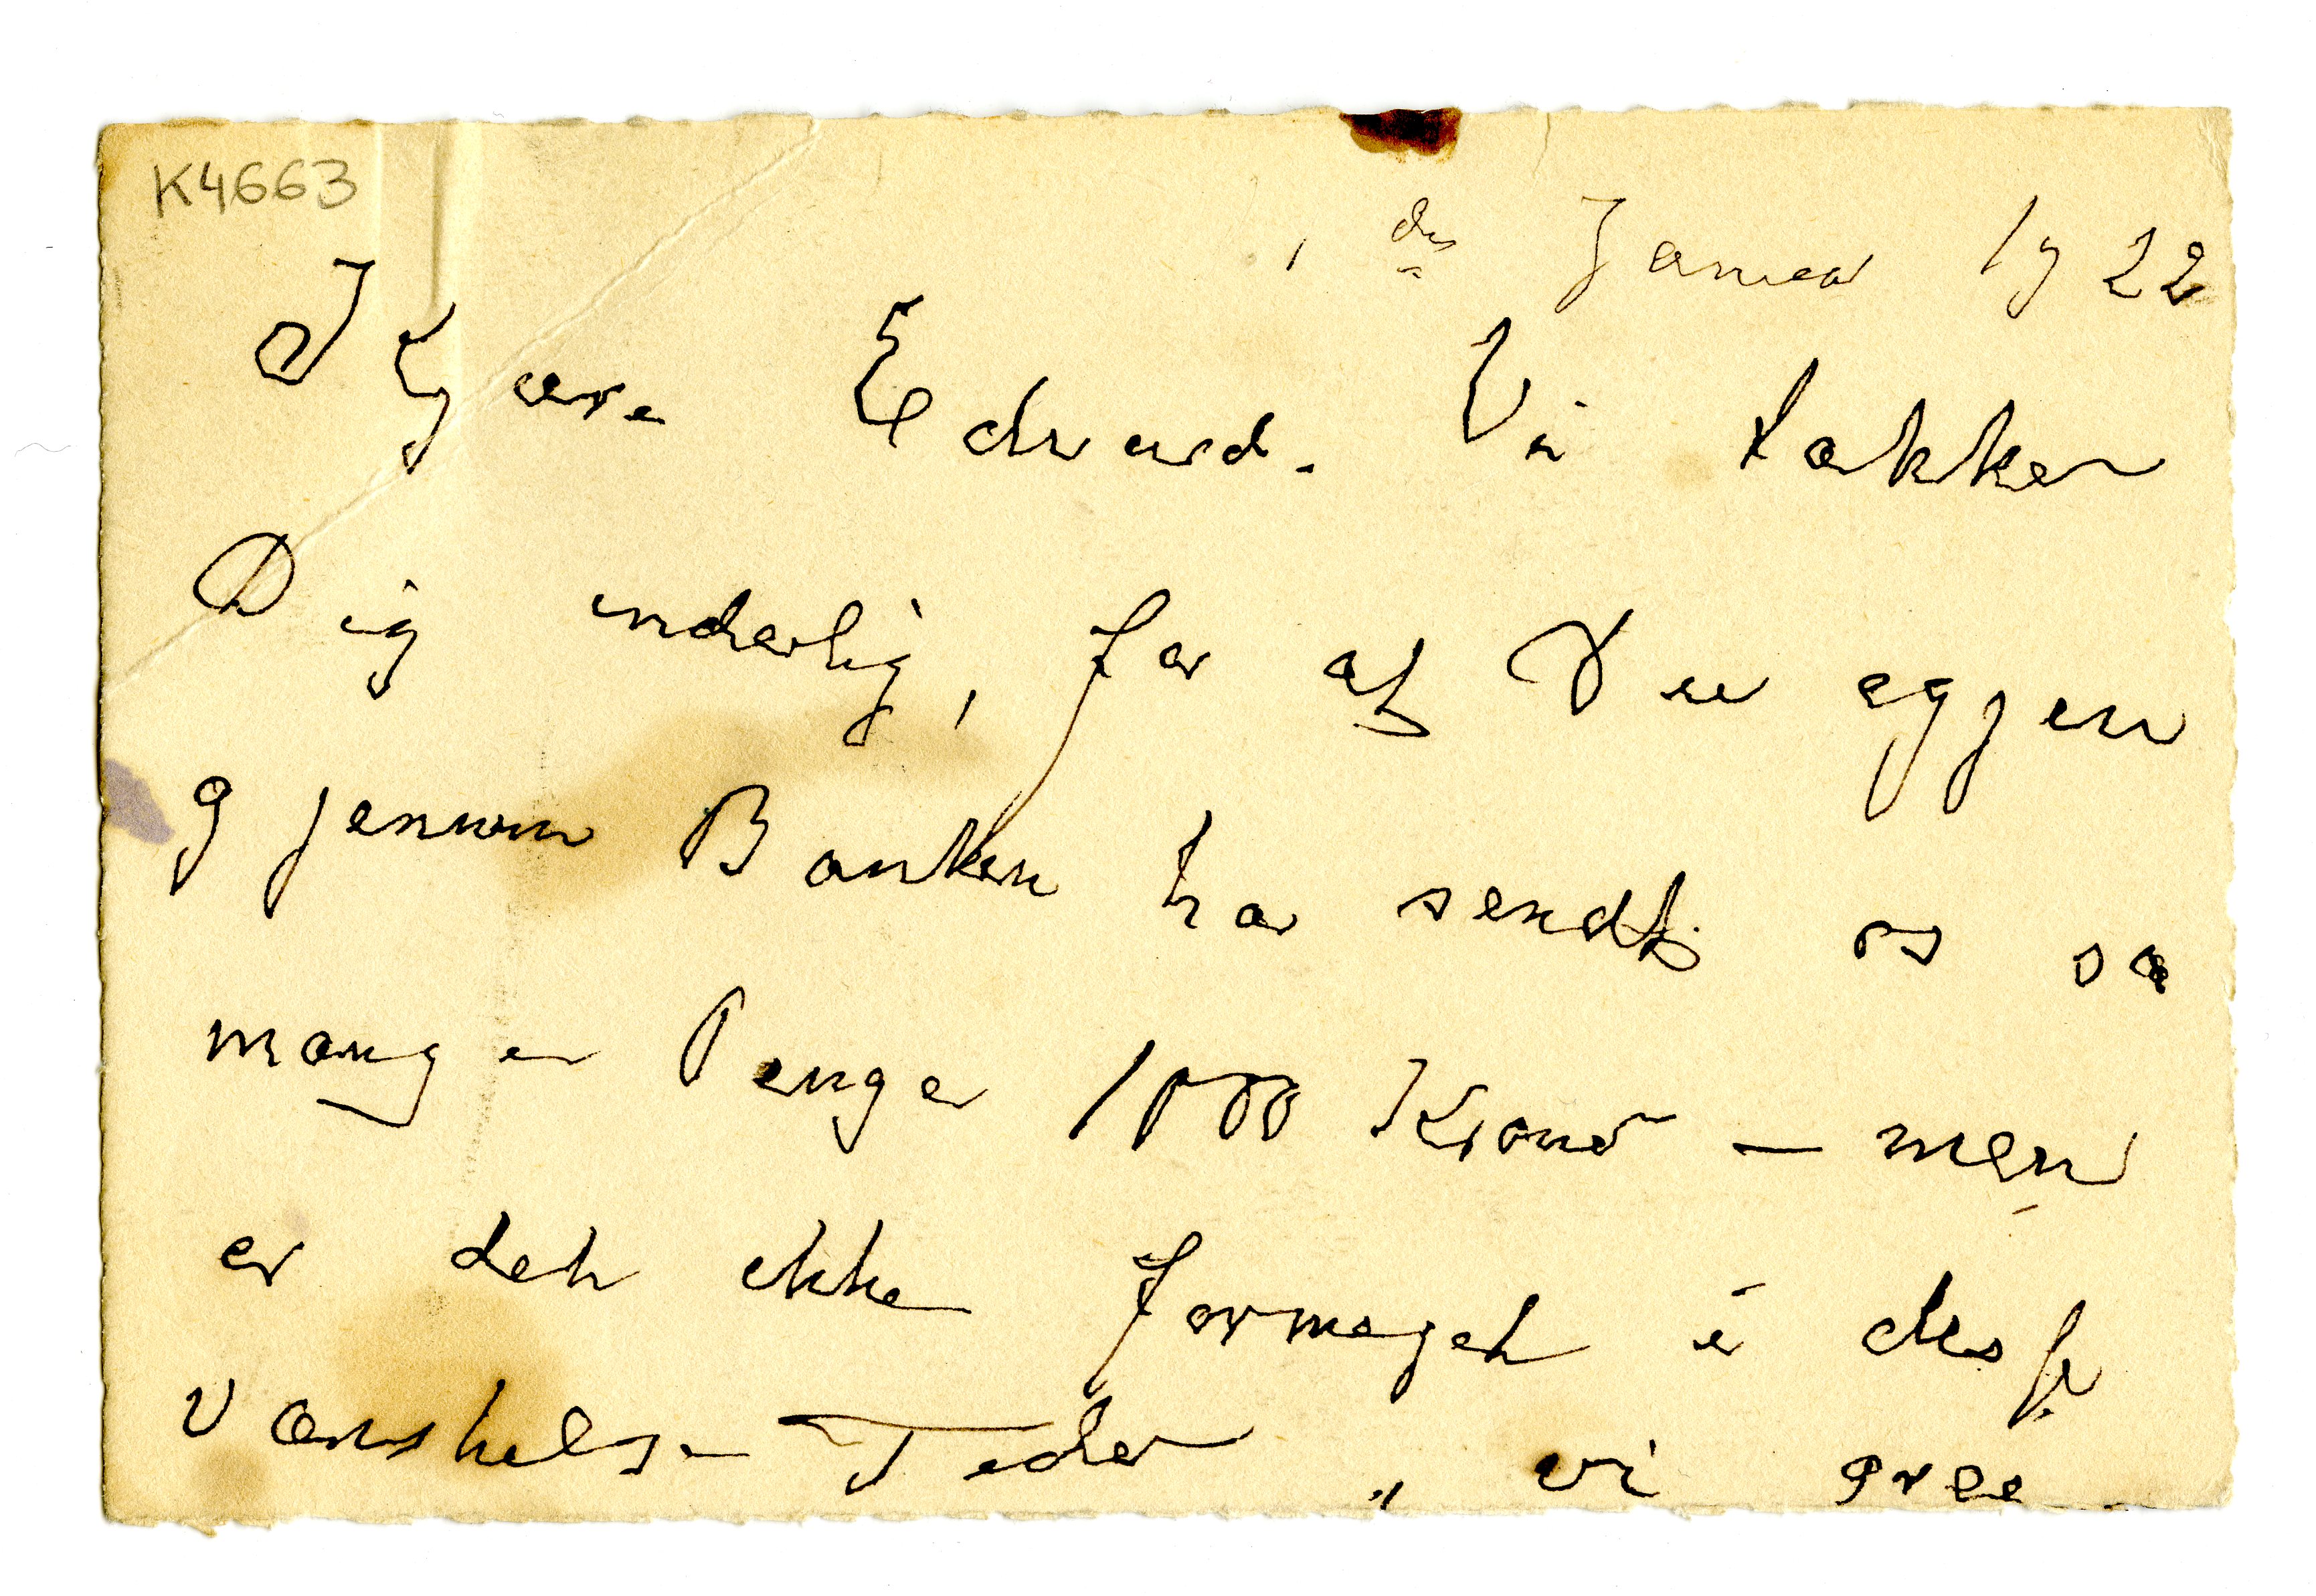 K4663
1 den Januar 1922
Kjære Edvard. Vi takker
Dig inderlig, for at Du igjen
gjennem Banken har sendt os så
mange Penge 1000 Kroner – men
er det ikke formeget i disse
vanskelse Tider, vi